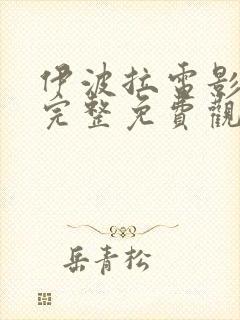 伊波拉雷影
完整免費觀
岳青松